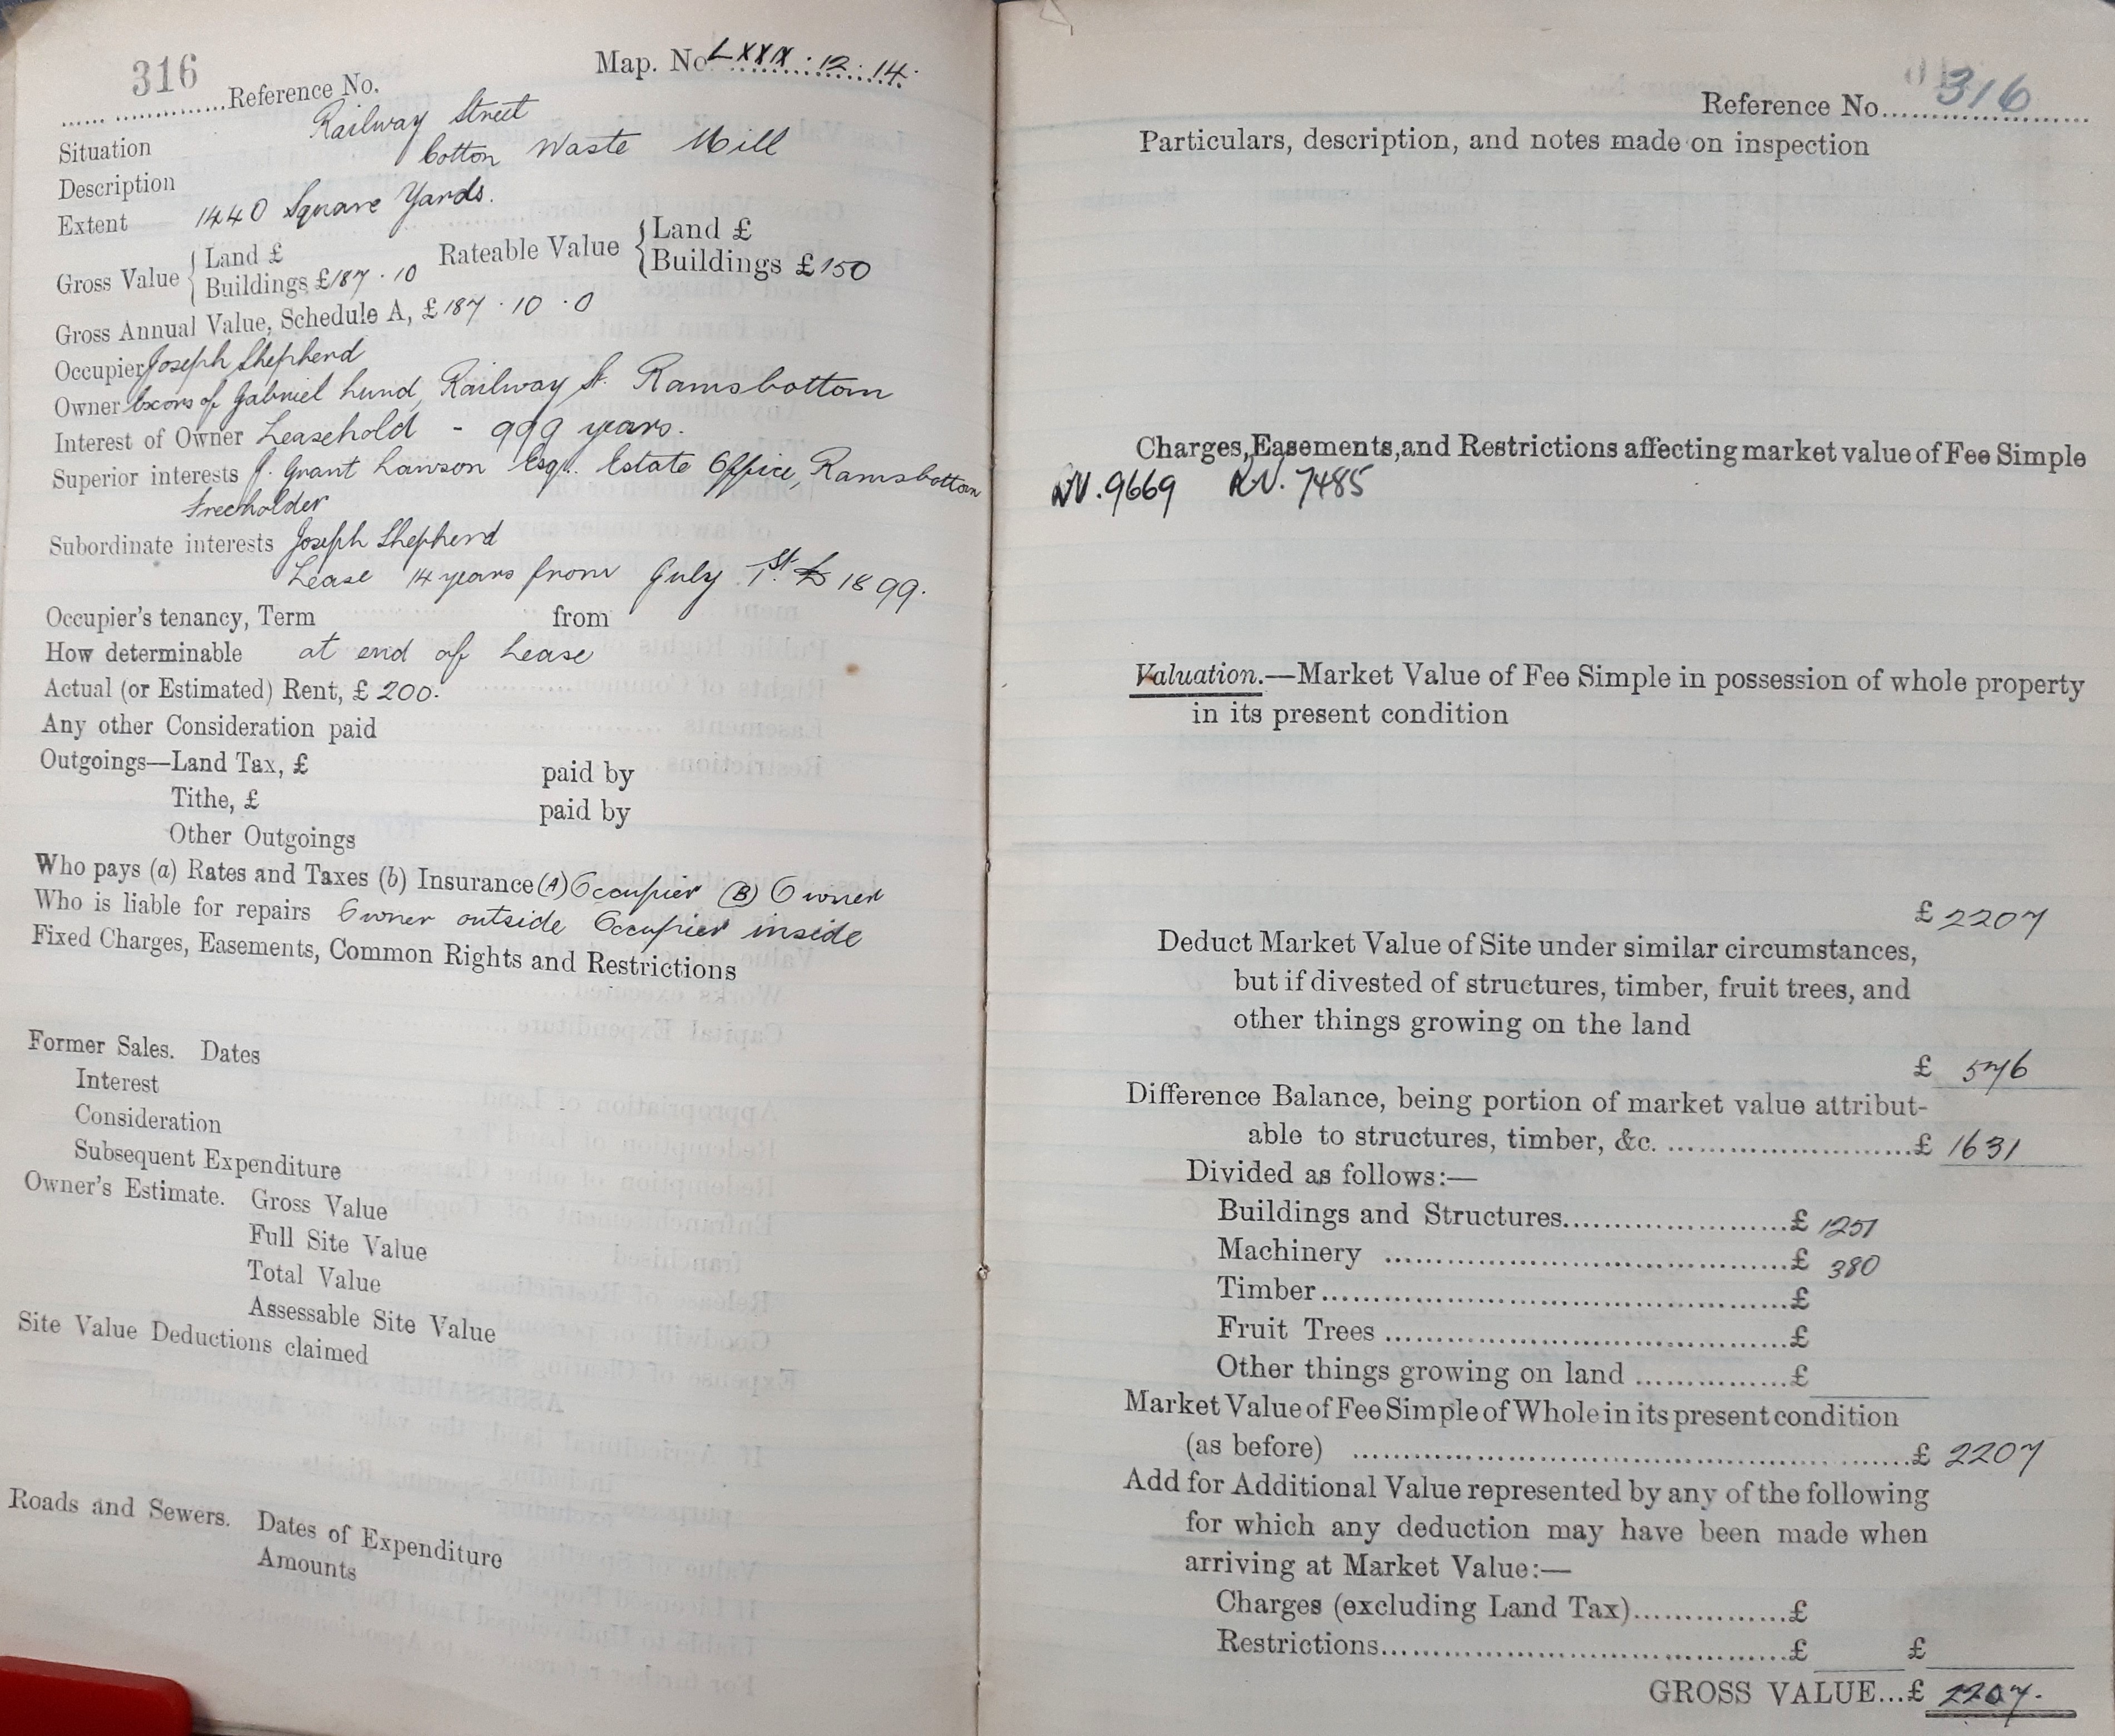 316
Reference No.
Map. No LXXIX . 12 . 14.
Situation Railway Street
Description Cotton Waste Mill
Extent 1440 Square Yards.
Gross Value { Land £
Buildings £187 . 10
Rateable Value { Land £
Buildings £150
Gross Annual Value, Schedule A, £187 . 10 . 0
Occupier Joseph Shepherd
Owner Excors of Gabriel Lund, Railway St. Ramsbottom
Interest of Owner Leasehold - 999 years.
Superior interests J. Grant Lawson Esqr. Estate Office, Ramsbottom
Freeholder
Subordinate interests Joseph Shepherd
Lease 14 years from July 1st 1899.
Occupier's tenancy, Term from
How determinable at end of Lease
Actual (or Estimated) Rent, £ 200.
Any other Consideration paid
Outgoings—Land Tax, £ paid by
Tithe, £ paid by
Other Outgoings
Who pays (a) Rates and Taxes (b) Insurance (A) Occupier (B) Owner
Who is liable for repairs Owner outside Occupier inside
Fixed Charges, Easements, Common Rights and Restrictions
Former Sales. Dates
Interest
Consideration
Subsequent Expenditure
Owner's Estimate. Gross Value
Full Site Value
Total Value
Assessable Site Value
Site Value Deductions claimed
Roads and Sewers. Dates of Expenditure
Amounts
Reference No. 316
Particulars, description, and notes made on inspection
Charges, Easements, and Restrictions affecting market value of Fee Simple
9669 7485
Valuation.—Market Value of Fee Simple in possession of whole property
in its present condition
£ 2207
Deduct Market Value of Site under similar circumstances,
but if divested of structures, timber, fruit trees, and
other things growing on the land
£ 576
Difference Balance, being portion of market value attribut-
able to structures, timber, &c. £ 1631
Divided as follows:—
Buildings and Structures £ 1251
Machinery £ 380
Timber £
Fruit Trees £
Other things growing on land £
Market Value of Fee Simple of Whole in its present condition
(as before) £ 2207
Add for Additional Value represented by any of the following
for which any deduction may have been made when
arriving at Market Value:—
Charges (excluding Land Tax) £
Restrictions £ £
GROSS VALUE...£ 2207.